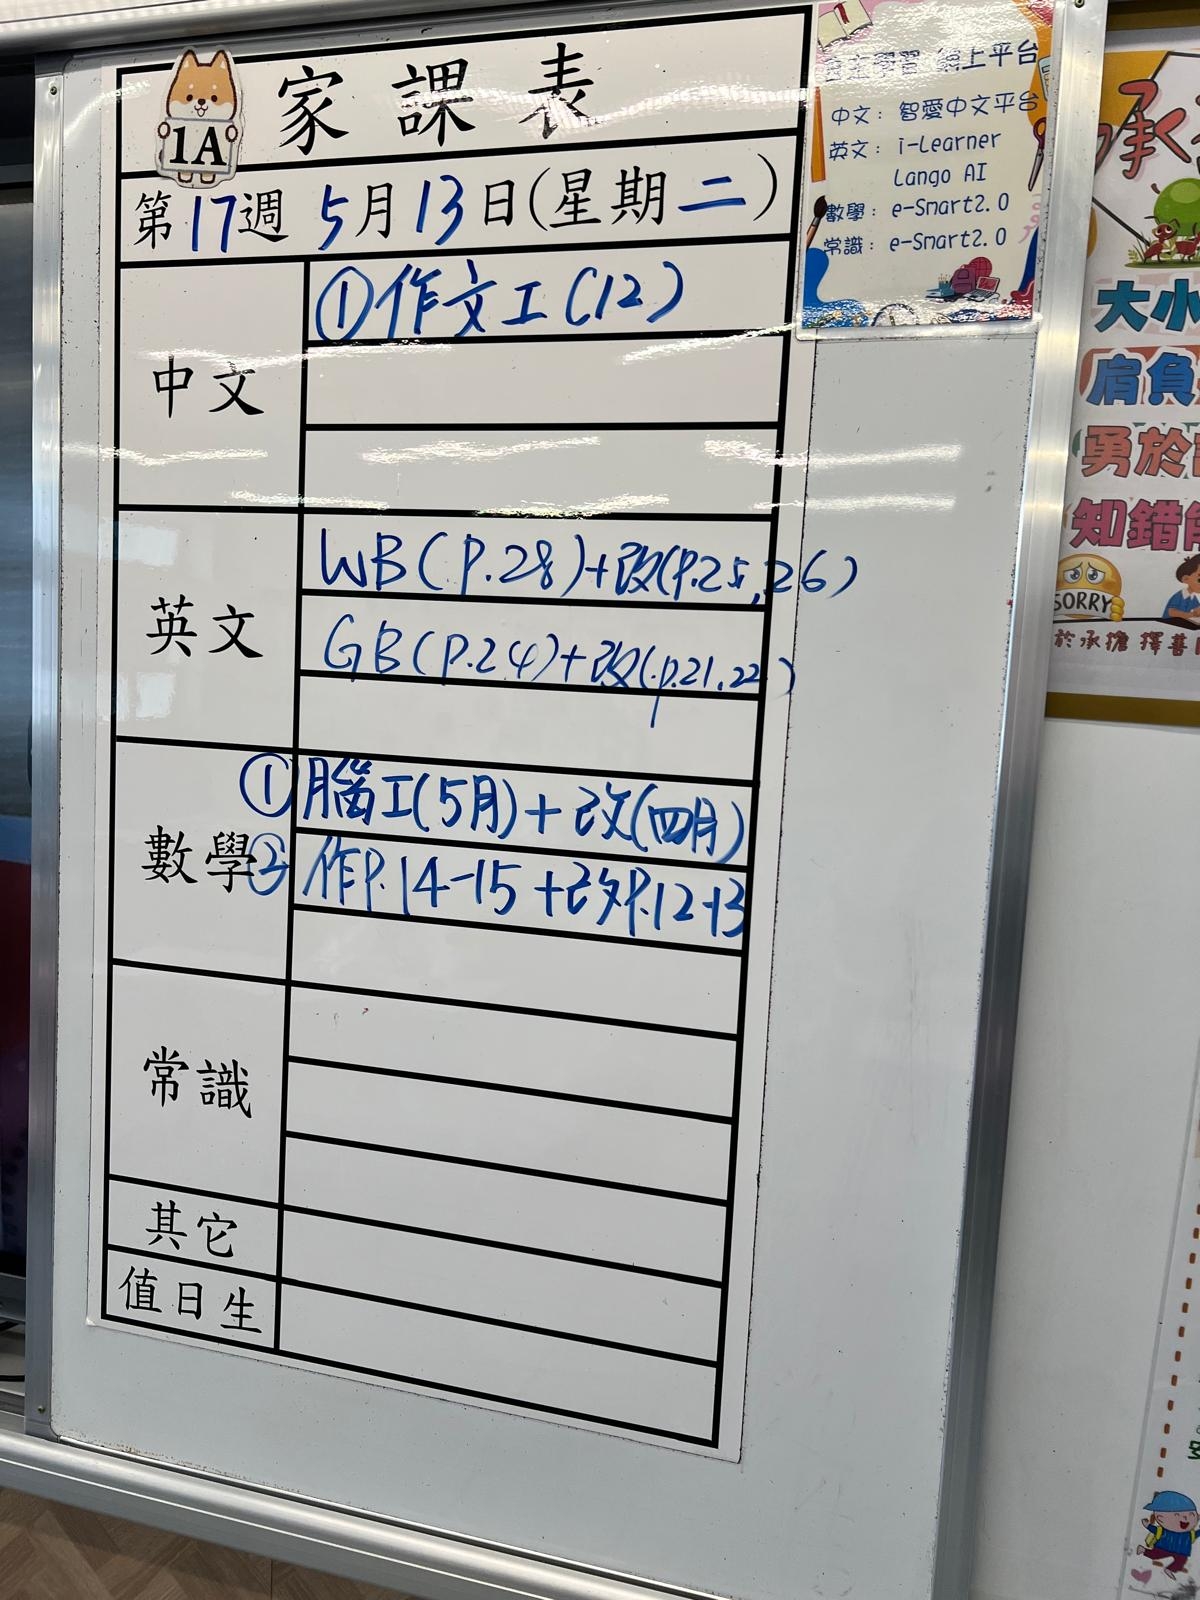 1A
家課表
第17週 5月13日(星期二)
中文
①作文工(12)
英文
WB(P.28)+改(P.25,26)
GB(P.24)+改(P.21,22)
數學
①腦工(5月)+改(四月)
②作P.14-15+改P.12-13
常識
其它
值日生
1
自主學習 網上平台
中文：智愛中文平台
英文：i-Learner
Lango AI
數學：e-Smart2.0
常識：e-Smart2.0
承
大小
肩負
勇於
知錯能
SORRY
於承擔 擇善